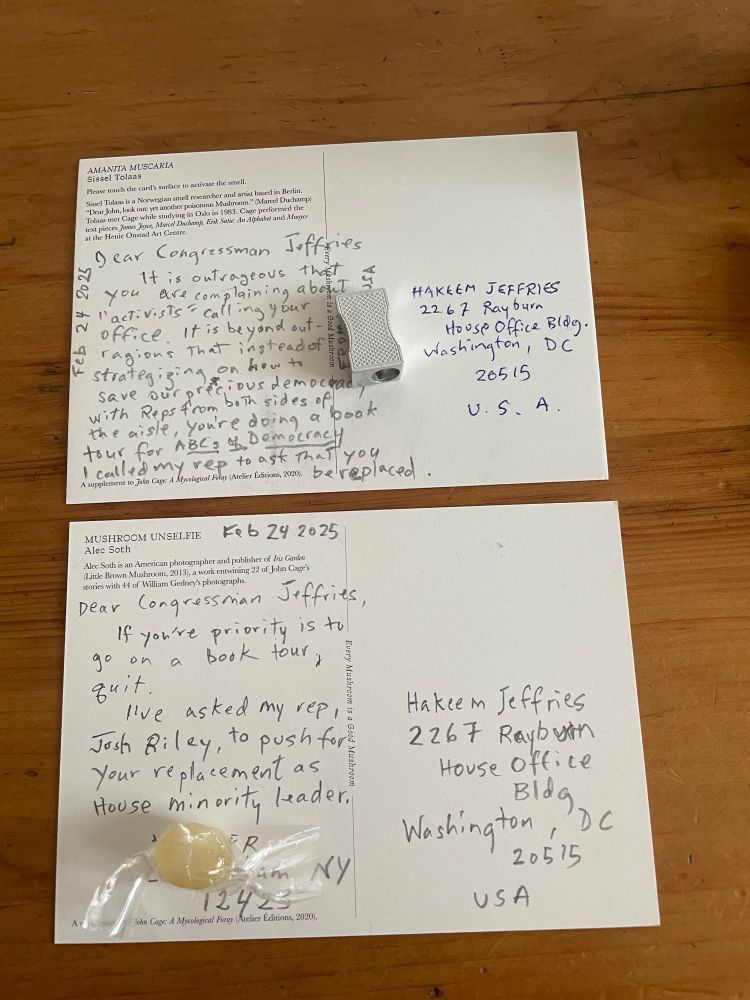 AMANITA MUSCARIA
Sissel Tolaas
Please touch the card's surface to activate the smell.
Sissel Tolaas is a Norwegian smell researcher and artist based in Berlin.
"Dear John, look out: yet another poisonous Mushroom." (Marcel Duchamp)
Tolaas met Cage while studying in Oslo in 1983. Cage performed the
text pieces James Joyce, Marcel Duchamp, Erik Satie: An Alphabet and Muoyce
at the Henie Onstad Art Centre.
Feb 24 2025
Dear Congressman Jeffries
It is outrageous that
you are complaining about
"activists" calling your
office. It is beyond out-
ragious that instead of
strategizing on how to
save our precious democracy
with Reps from both sides of
the aisle, you're doing a book
tour for ABCs of Democracy
I called my rep to ask that you
be replaced.
A supplement to John Cage: A Mycological Foray (Atelier Éditions, 2020).
Every Mushroom is a Good Mushroom
FROM
USA
HAKEEM JEFFRIES
2267 Rayburn
House Office Bldg.
Washington, DC
20515
U.S.A.
MUSHROOM UNSELFIE
Feb 24 2025
Alec Soth
Alec Soth is an American photographer and publisher of Iris Garden
(Little Brown Mushroom, 2013), a work entwining 22 of John Cage's
stories with 44 of William Gedney's photographs.
Dear Congressman Jeffries,
If you're priority is to
go on a book tour,
quit.
I've asked my rep,
Josh Riley, to push for
your replacement as
House minority leader.
NY
12423
A John Cage: A Mycological Foray (Atelier Éditions, 2020).
Every Mushroom is a Good Mushroom
Hakeem Jeffries
2267 Rayburn
House Office
Bldg
Washington, DC
20515
USA